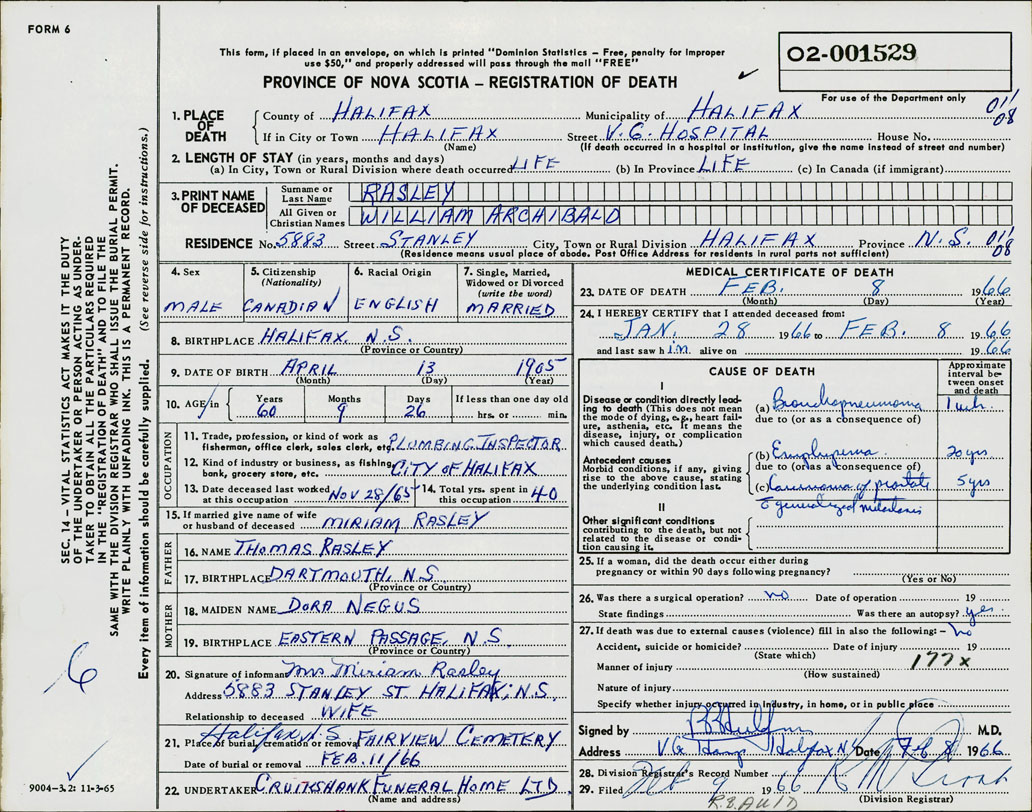 FORM 6
This form, if placed in an envelope, on which is printed "Dominion Statistics – Free, penalty for improper
use $50," and properly addressed will pass through the mail "FREE"
PROVINCE OF NOVA SCOTIA – REGISTRATION OF DEATH
02-001529
For use of the Department only
1. PLACE OF DEATH
County of HALIFAX Municipality of HALIFAX 011/08
If in City or Town HALIFAX Street V.G. HOSPITAL House No.
(Name) (If death occurred in a hospital or institution, give the name instead of street and number)
2. LENGTH OF STAY (in years, months and days)
(a) In City, Town or Rural Division where death occurred LIFE (b) In Province LIFE (c) In Canada (if immigrant)
3. PRINT NAME OF DECEASED
Surname or Last Name RASLEY
All Given or Christian Names WILLIAM ARCHIBALD
RESIDENCE No. 5883 Street STANLEY City, Town or Rural Division HALIFAX Province N.S. 011/08
(Residence means usual place of abode. Post Office Address for residents in rural parts not sufficient)
4. Sex MALE
5. Citizenship (Nationality) CANADIAN
6. Racial Origin ENGLISH
7. Single, Married, Widowed or Divorced (write the word) MARRIED
8. BIRTHPLACE HALIFAX, N.S.
(Province or Country)
9. DATE OF BIRTH APRIL 13 1905
(Month) (Day) (Year)
10. AGE in Years 60 Months 9 Days 26 If less than one day old hrs. or min.
OCCUPATION
11. Trade, profession, or kind of work as
fisherman, office clerk, sales clerk, etc. PLUMBING INSPECTOR
12. Kind of industry or business, as fishing,
bank, grocery store, etc. CITY OF HALIFAX
13. Date deceased last worked at this occupation NOV 28/65 14. Total yrs. spent in this occupation 40
15. If married give name of wife
or husband of deceased MIRIAM RASLEY
FATHER
16. NAME THOMAS RASLEY
17. BIRTHPLACE DARTMOUTH, N.S.
(Province or Country)
MOTHER
18. MAIDEN NAME DORA NEGUS
19. BIRTHPLACE EASTERN PASSAGE, N.S.
(Province or Country)
20. Signature of informant Mrs Miriam Rasley
Address 5883 STANLEY ST HALIFAX, N.S.
Relationship to deceased WIFE
21. Place of burial, cremation or removal Halifax N.S. FAIRVIEW CEMETERY
Date of burial or removal FEB. 11/66
22. UNDERTAKER CRUIKSHANK FUNERAL HOME LTD.
(Name and address)
MEDICAL CERTIFICATE OF DEATH
23. DATE OF DEATH FEB. 8 1966
(Month) (Day) (Year)
24. I HEREBY CERTIFY that I attended deceased from:
JAN. 28 1966 to FEB. 8 1966
and last saw him alive on 1966
CAUSE OF DEATH
Approximate interval between onset and death
I
Disease or condition directly leading to death (This does not
mean the mode of dying, e.g., heart failure, asthenia, etc. It means the
disease, injury, or complication
which caused death.)
(a) Bronchopneumonia 1 wk.
due to (or as a consequence of)
Antecedent causes
Morbid conditions, if any, giving
rise to the above cause, stating
the underlying condition last.
(b) Emphysema 20 yrs
due to (or as a consequence of)
(c) Carcinoma of prostate 5 yrs
c generalized metastasis
II
Other significant conditions
contributing to the death, but not
related to the disease or condition
causing it.
25. If a woman, did the death occur either during
pregnancy or within 90 days following pregnancy?
(Yes or No)
26. Was there a surgical operation? no Date of operation 19
State findings Was there an autopsy? yes
27. If death was due to external causes (violence) fill in also the following: – No
Accident, suicide or homicide? Date of injury 19
(State which)
177x
Manner of injury
(How sustained)
Nature of injury
Specify whether injury occurred in industry, in home, or in public place
Signed by M.D.
Address V.G. Hosp Halifax NS Date Feb 8 1966
28. Division Registrar's Record Number
29. Filed Feb 9 1966
(Division Registrar)
SEC. 14 – VITAL STATISTICS ACT MAKES IT THE DUTY
OF THE UNDERTAKER OR PERSON ACTING AS UNDERTAKER
TO OBTAIN ALL THE PARTICULARS REQUIRED
IN THE "REGISTRATION OF DEATH" AND TO FILE THE
SAME WITH THE DIVISION REGISTRAR WHO SHALL ISSUE THE BURIAL PERMIT.
WRITE PLAINLY WITH UNFADING INK. THIS IS A PERMANENT RECORD.
Every item of information should be carefully supplied. (See reverse side for instructions.)
6
9004-3.2: 11-3-65